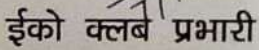 ईको क्लब प्रभारी